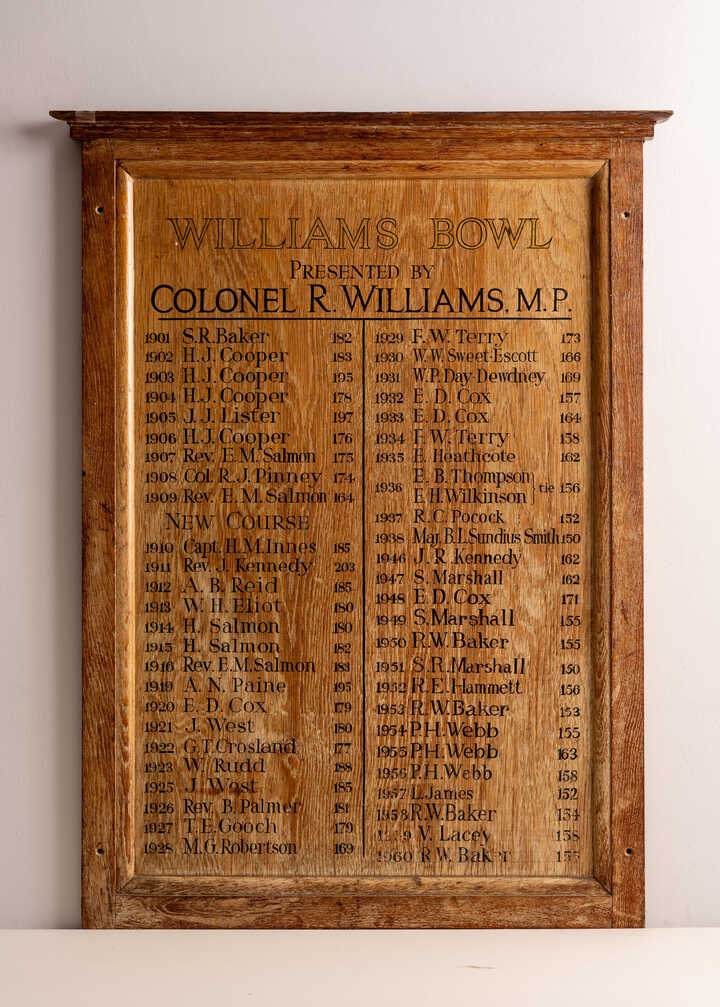 WILLIAMS BOWL
PRESENTED BY
COLONEL R. WILLIAMS, M.P.
1901 S.R. Baker 182
1902 H.J. Cooper 183
1903 H.J. Cooper 195
1904 H.J. Cooper 178
1905 J.J. Lister 197
1906 H.J. Cooper 176
1907 Rev. E.M. Salmon 175
1908 Col. R.J. Pinney 174
1909 Rev. E.M. Salmon 164
NEW COURSE
1910 Capt. H.M. Innes 185
1911 Rev. J. Kennedy 203
1912 A. B. Reid 185
1913 W. H. Eliot 180
1914 H. Salmon 180
1915 H. Salmon 182
1916 Rev. E.M. Salmon 183
1919 A. N. Paine 195
1920 E. D. Cox 179
1921 J. West 180
1922 G.T. Crosland 177
1923 W. Rudd 188
1925 J. West 185
1926 Rev. B. Palmer 181
1927 T.E. Gooch 179
1928 M.G. Robertson 169
1929 F. W. Terry 173
1930 W. W. Sweet-Escott 166
1931 W.P. Day-Dewdney 169
1932 E. D. Cox 157
1933 E. D. Cox 164
1934 F. W. Terry 158
1935 E. Heathcote 162
1936 E. B. Thompson
E. H. Wilkinson } tie 156
1937 R. C. Pocock 152
1938 Maj. B.L. Sundius Smith 150
1946 J. R. Kennedy 162
1947 S. Marshall 162
1948 E. D. Cox 171
1949 S. Marshall 155
1950 R.W. Baker 155
1951 S.R. Marshall 150
1952 R.E. Hammett 156
1953 R.W. Baker 153
1954 P.H. Webb 155
1955 P.H. Webb 163
1956 P.H. Webb 158
1957 L. James 152
1958 R.W. Baker 154
V. Lacey 158
1960 R.W. Baker